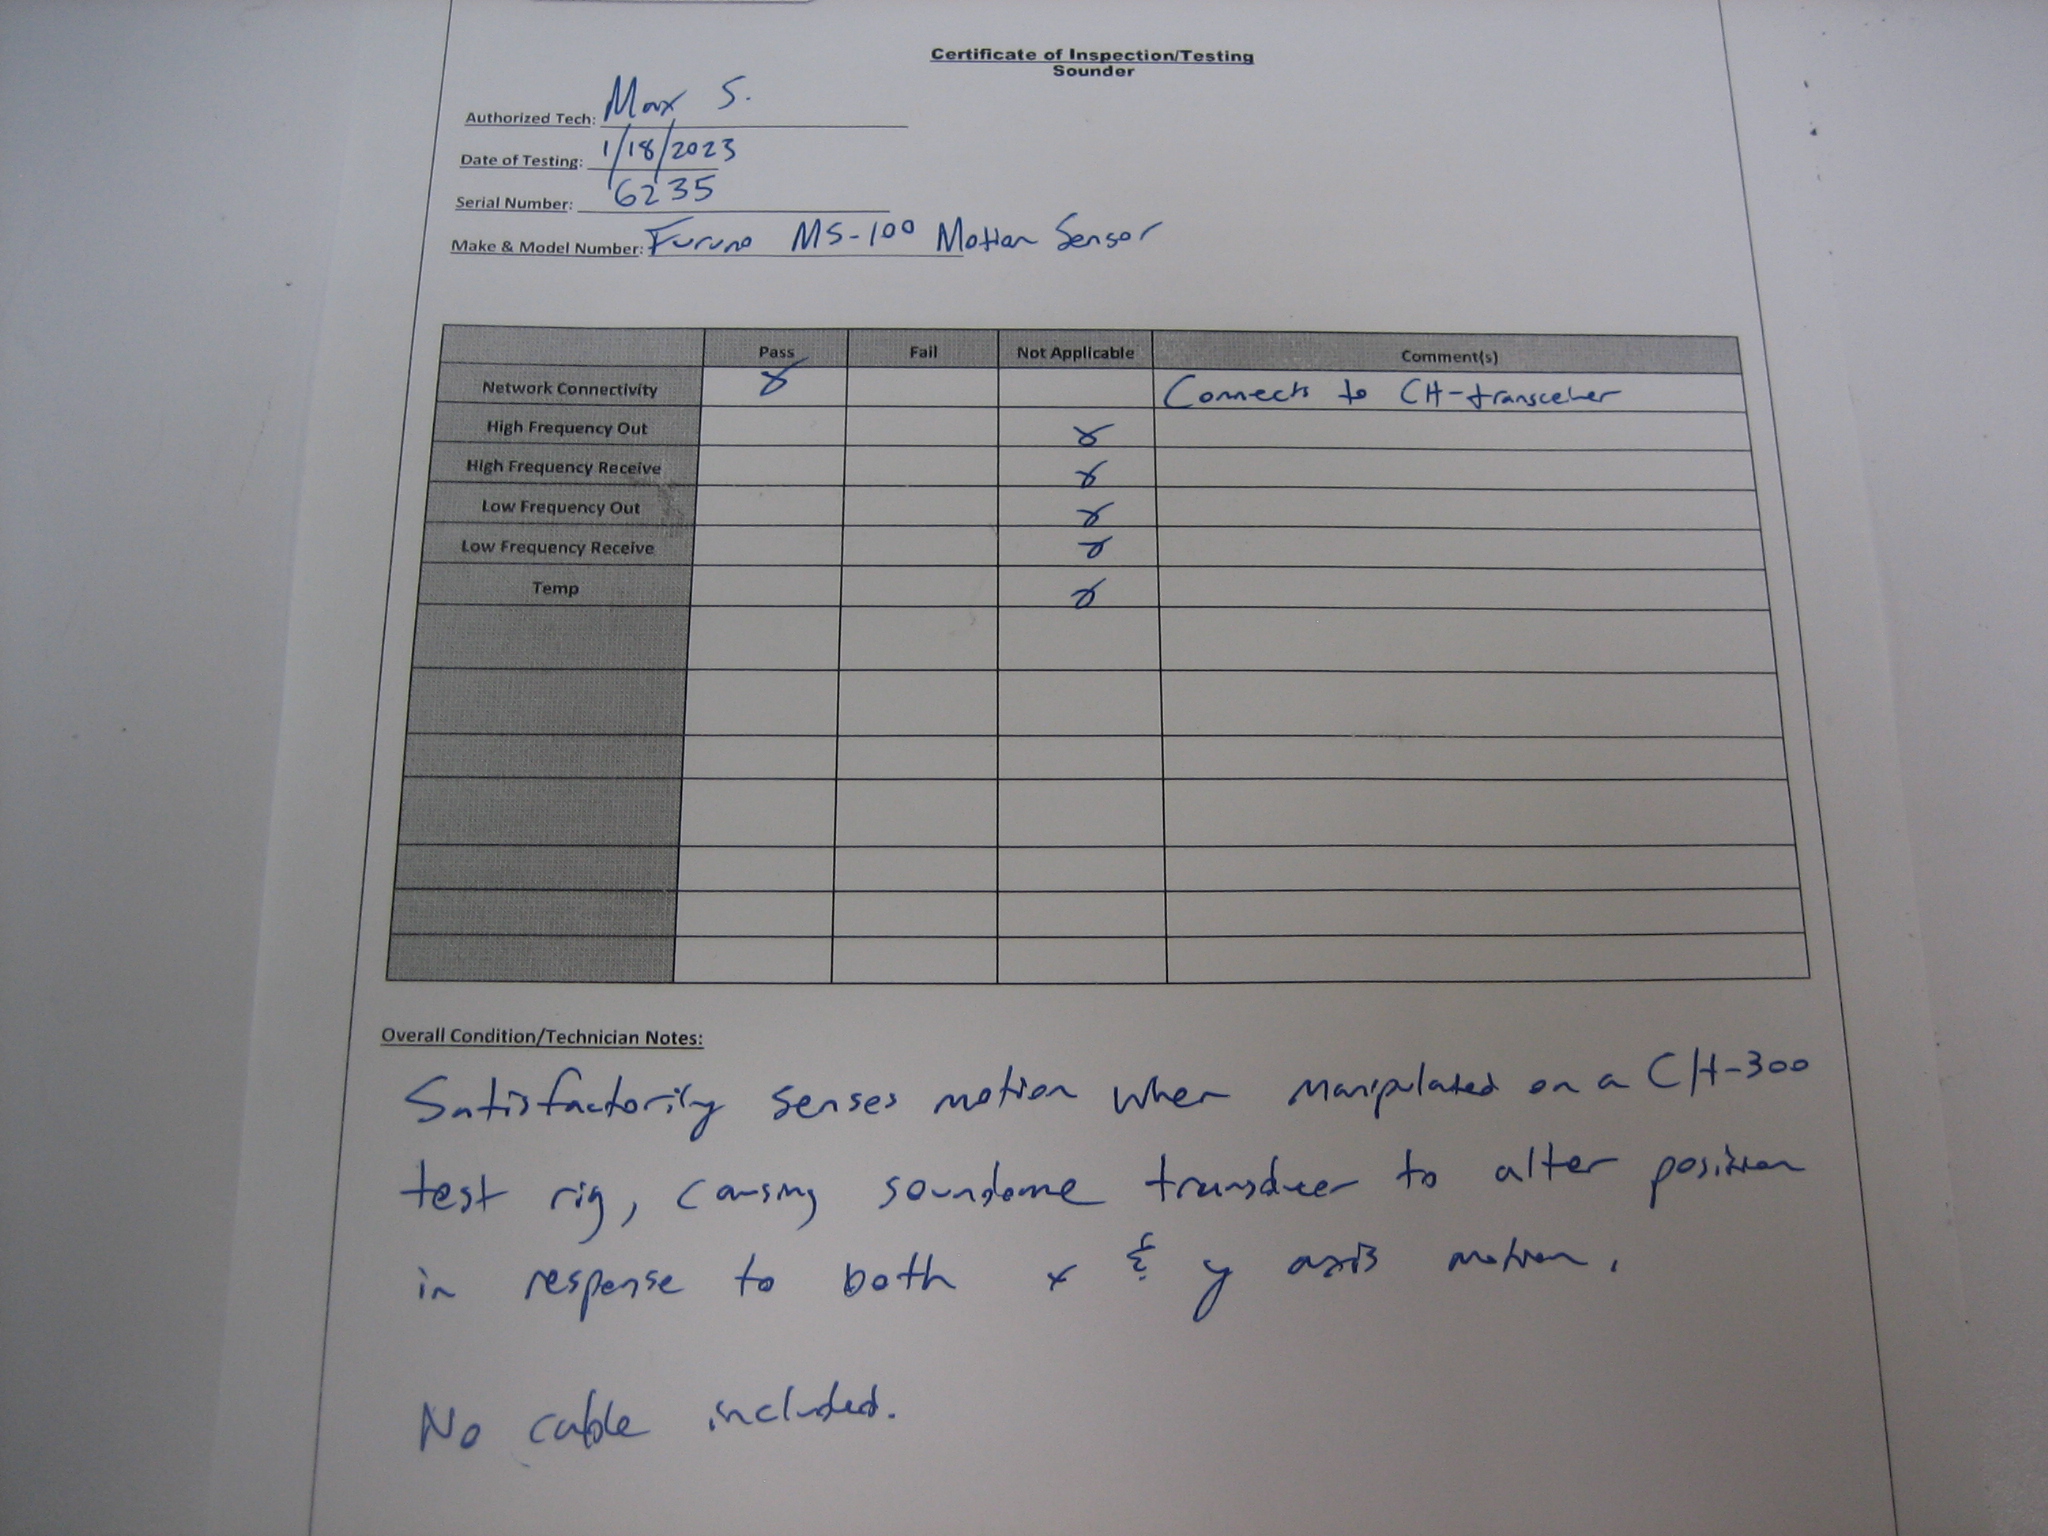 Certificate of Inspection/Testing
Sounder
Authorized Tech: Max S.
Date of Testing: 1/18/2023
Serial Number: 6235
Make & Model Number: Furuno MS-100 Motion Sensor
Pass Fail Not Applicable Comment(s)
Network Connectivity X Connects to CH-transceiver
High Frequency Out X
High Frequency Receive X
Low Frequency Out X
Low Frequency Receive X
Temp X
Overall Condition/Technician Notes:
Satisfactorily senses motion when manipulated on a CH-300
test rig, causing soundome transducer to alter position
in response to both x & y axis motion.
No cable included.